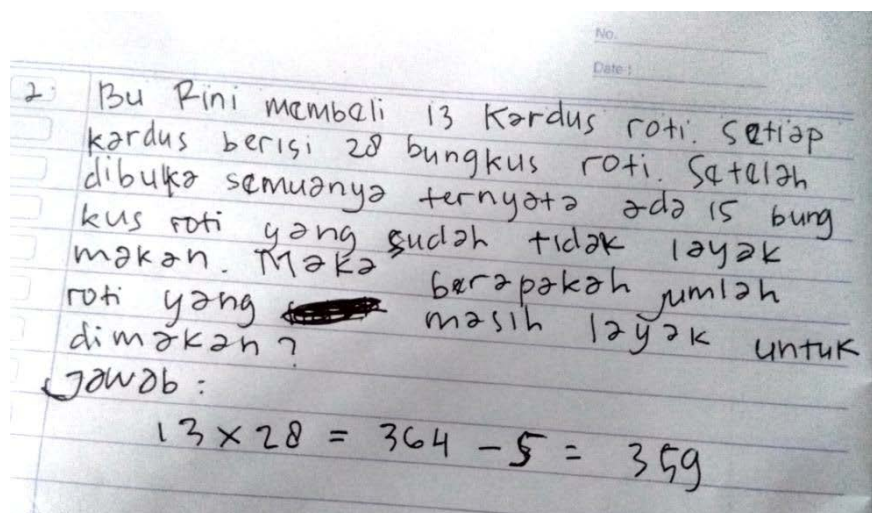 No.
Date :
2. Bu Rini membeli 13 Kardus roti. Setiap
kardus berisi 28 bungkus roti. Setelah
dibuka semuanya ternyata ada 15 bung
kus roti yang sudah tidak layak
makan. Maka berapakah jumlah
roti yang masih layak untuk
dimakan?
Jawab :
13 × 28 = 364 - 5 = 359